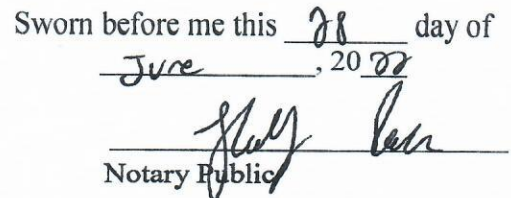 Sworn before me this 28 day of
June, 2022
Notary Public